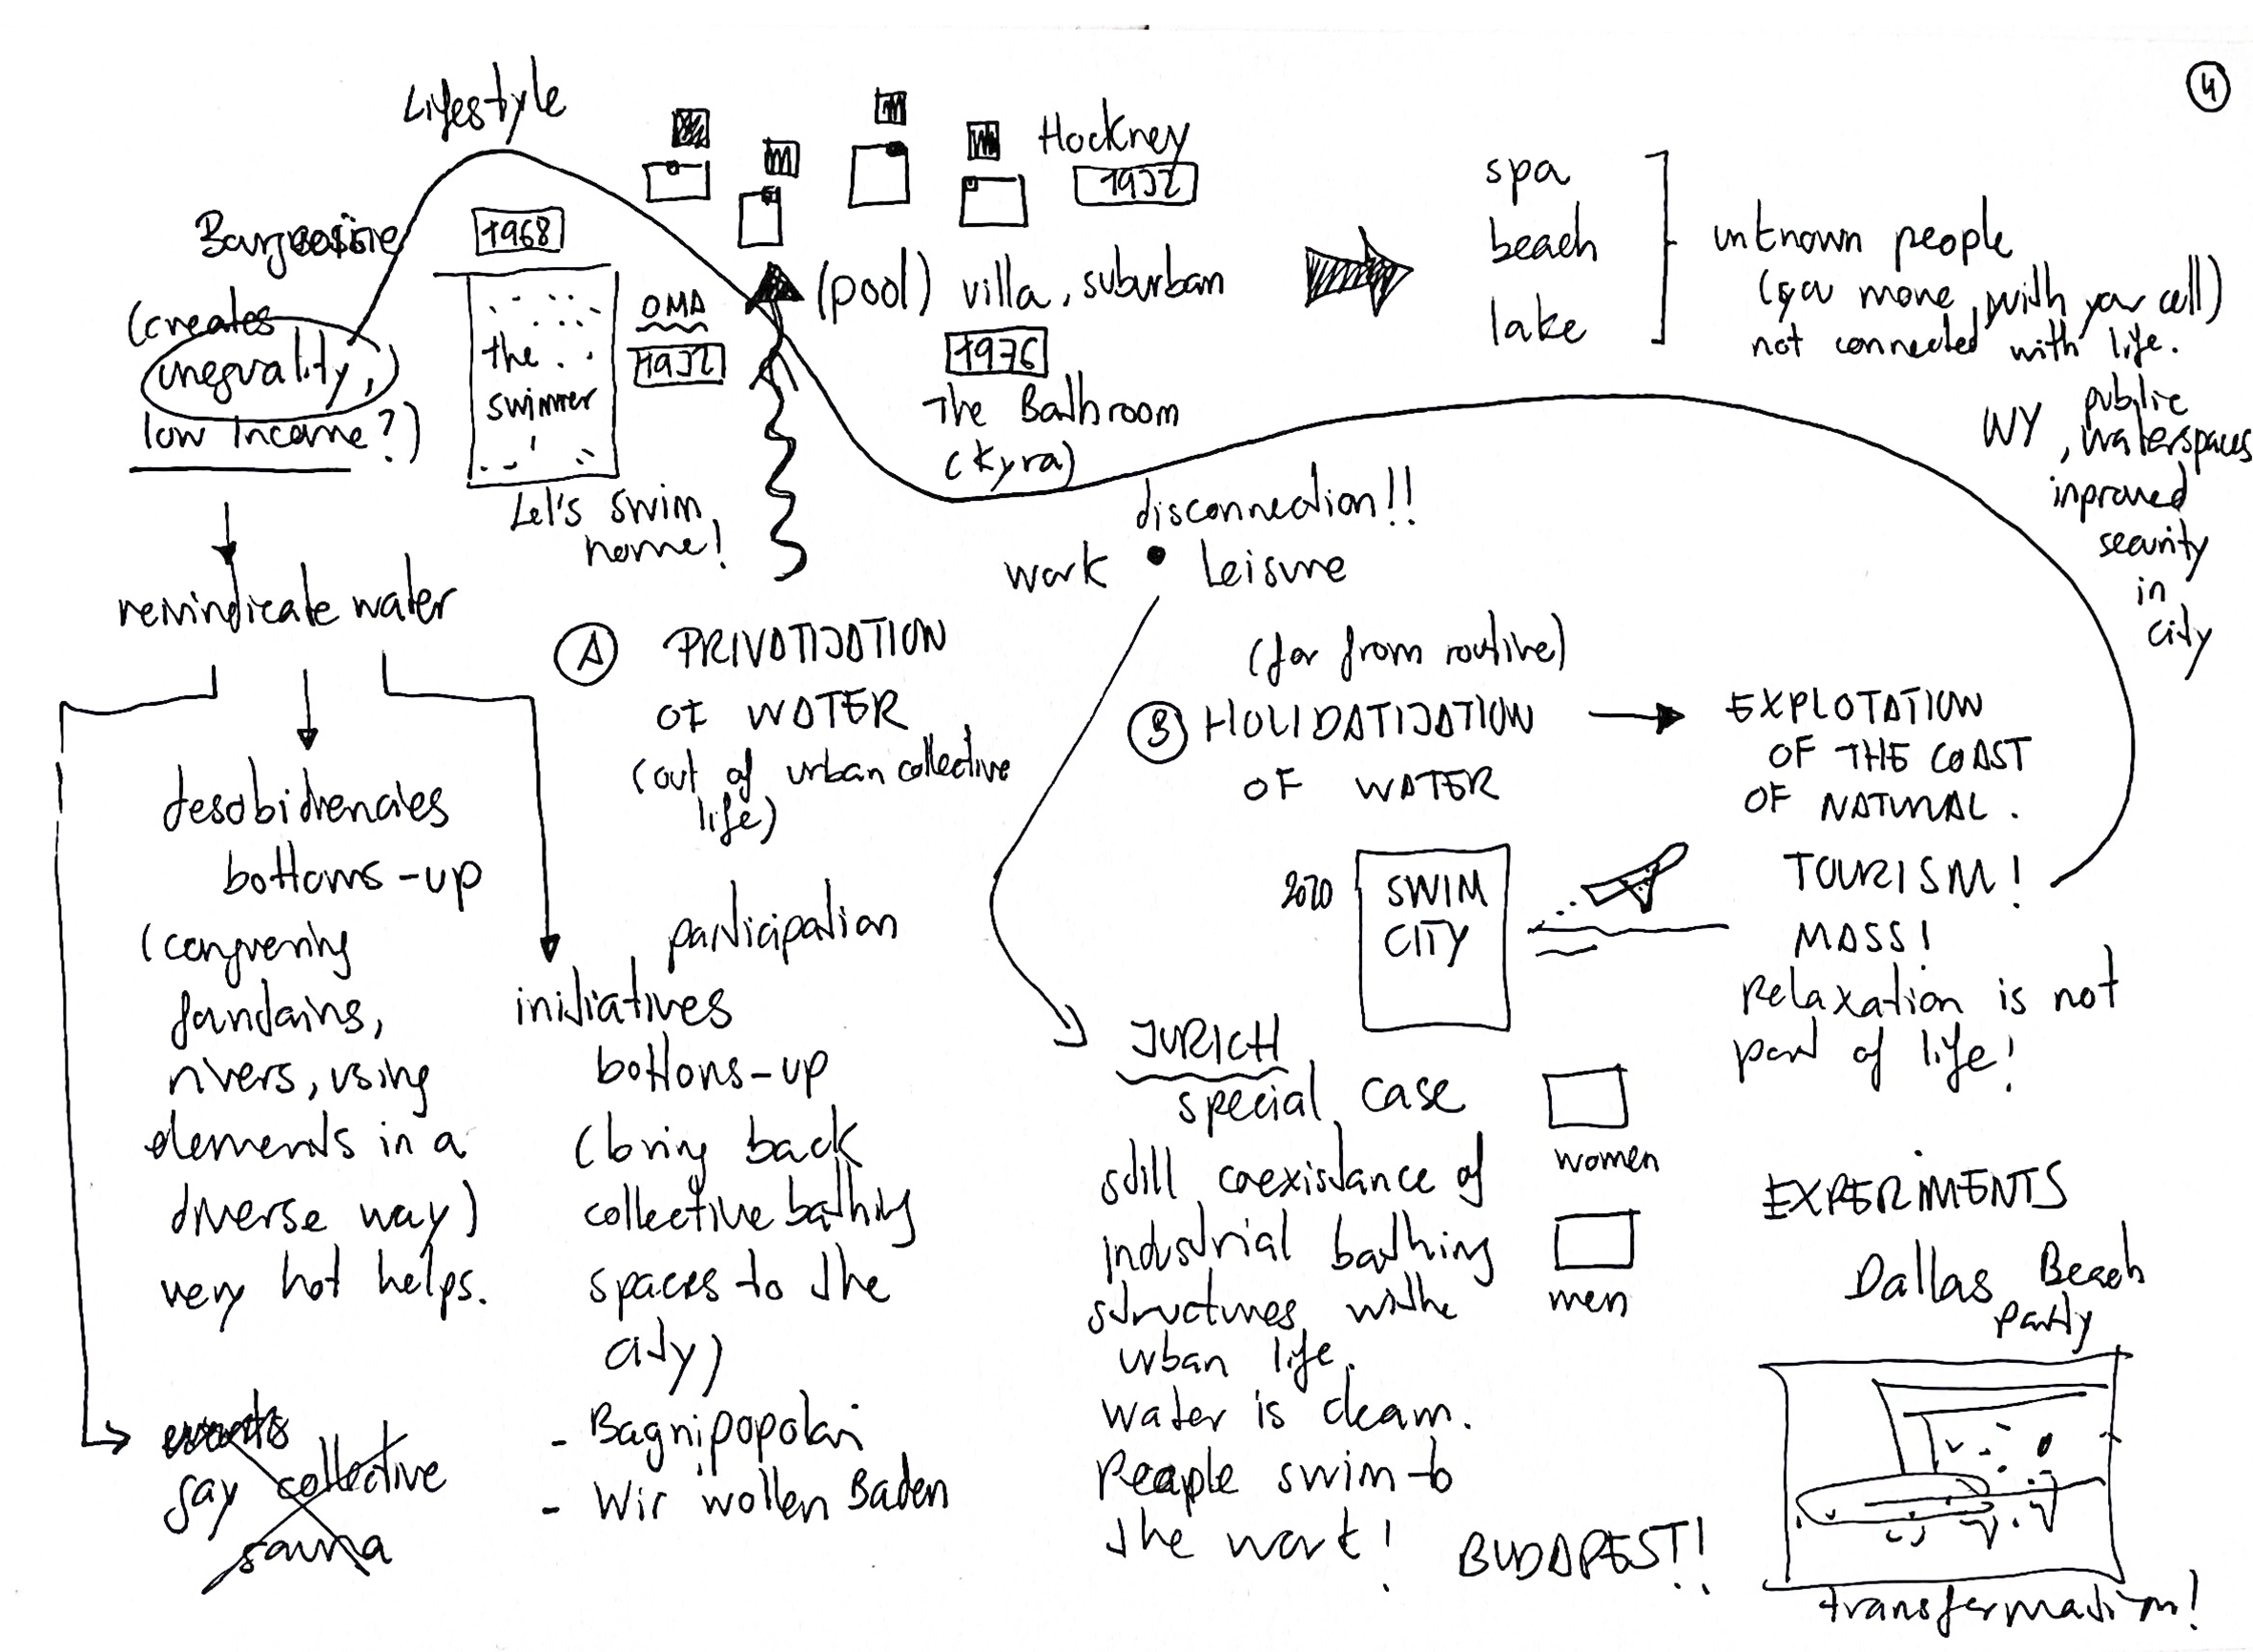 4
Lifestyle
Hockney
1972
Bourgeoisie
(creates
inequality,
low income?)
1968
the
swimmer
Let's swim
home!
OMA
1972
(pool) villa, suburban
1976
The Bathroom
(Kyra)
spa
beach
lake
unknown people
(you move with your cell)
not connected with life.
NY, public
waterspaces
inproved
security
in
city
disconnection!!
work • Leisure
reivindicate water
A PRIVATIZATION
OF WATER
(out of urban collective
life)
(far from routine)
B HOLIDATIZATION
OF WATER
EXPLOTATION
OF THE COAST
OF NATURAL.
TOURISM!
MASS!
Relaxation is not
part of life!
desobidiencies
bottoms-up
(conquering
fountains,
rivers, using
elements in a
diverse way)
very hot helps.
participation
initiatives
bottons-up
(bring back
collective bathing
spaces to the
city)
- Bagnipopolari
- Wir wollen Baden
events
gay collective
sauna
2020
SWIM
CITY
ZURICH
special case
still coexistance of
industrial bathing
structures withe
urban life.
water is clean.
People swim to
the work!
women
men
BUDAPEST!!
EXPERIMENTS
Dallas Beach
party
transformation!